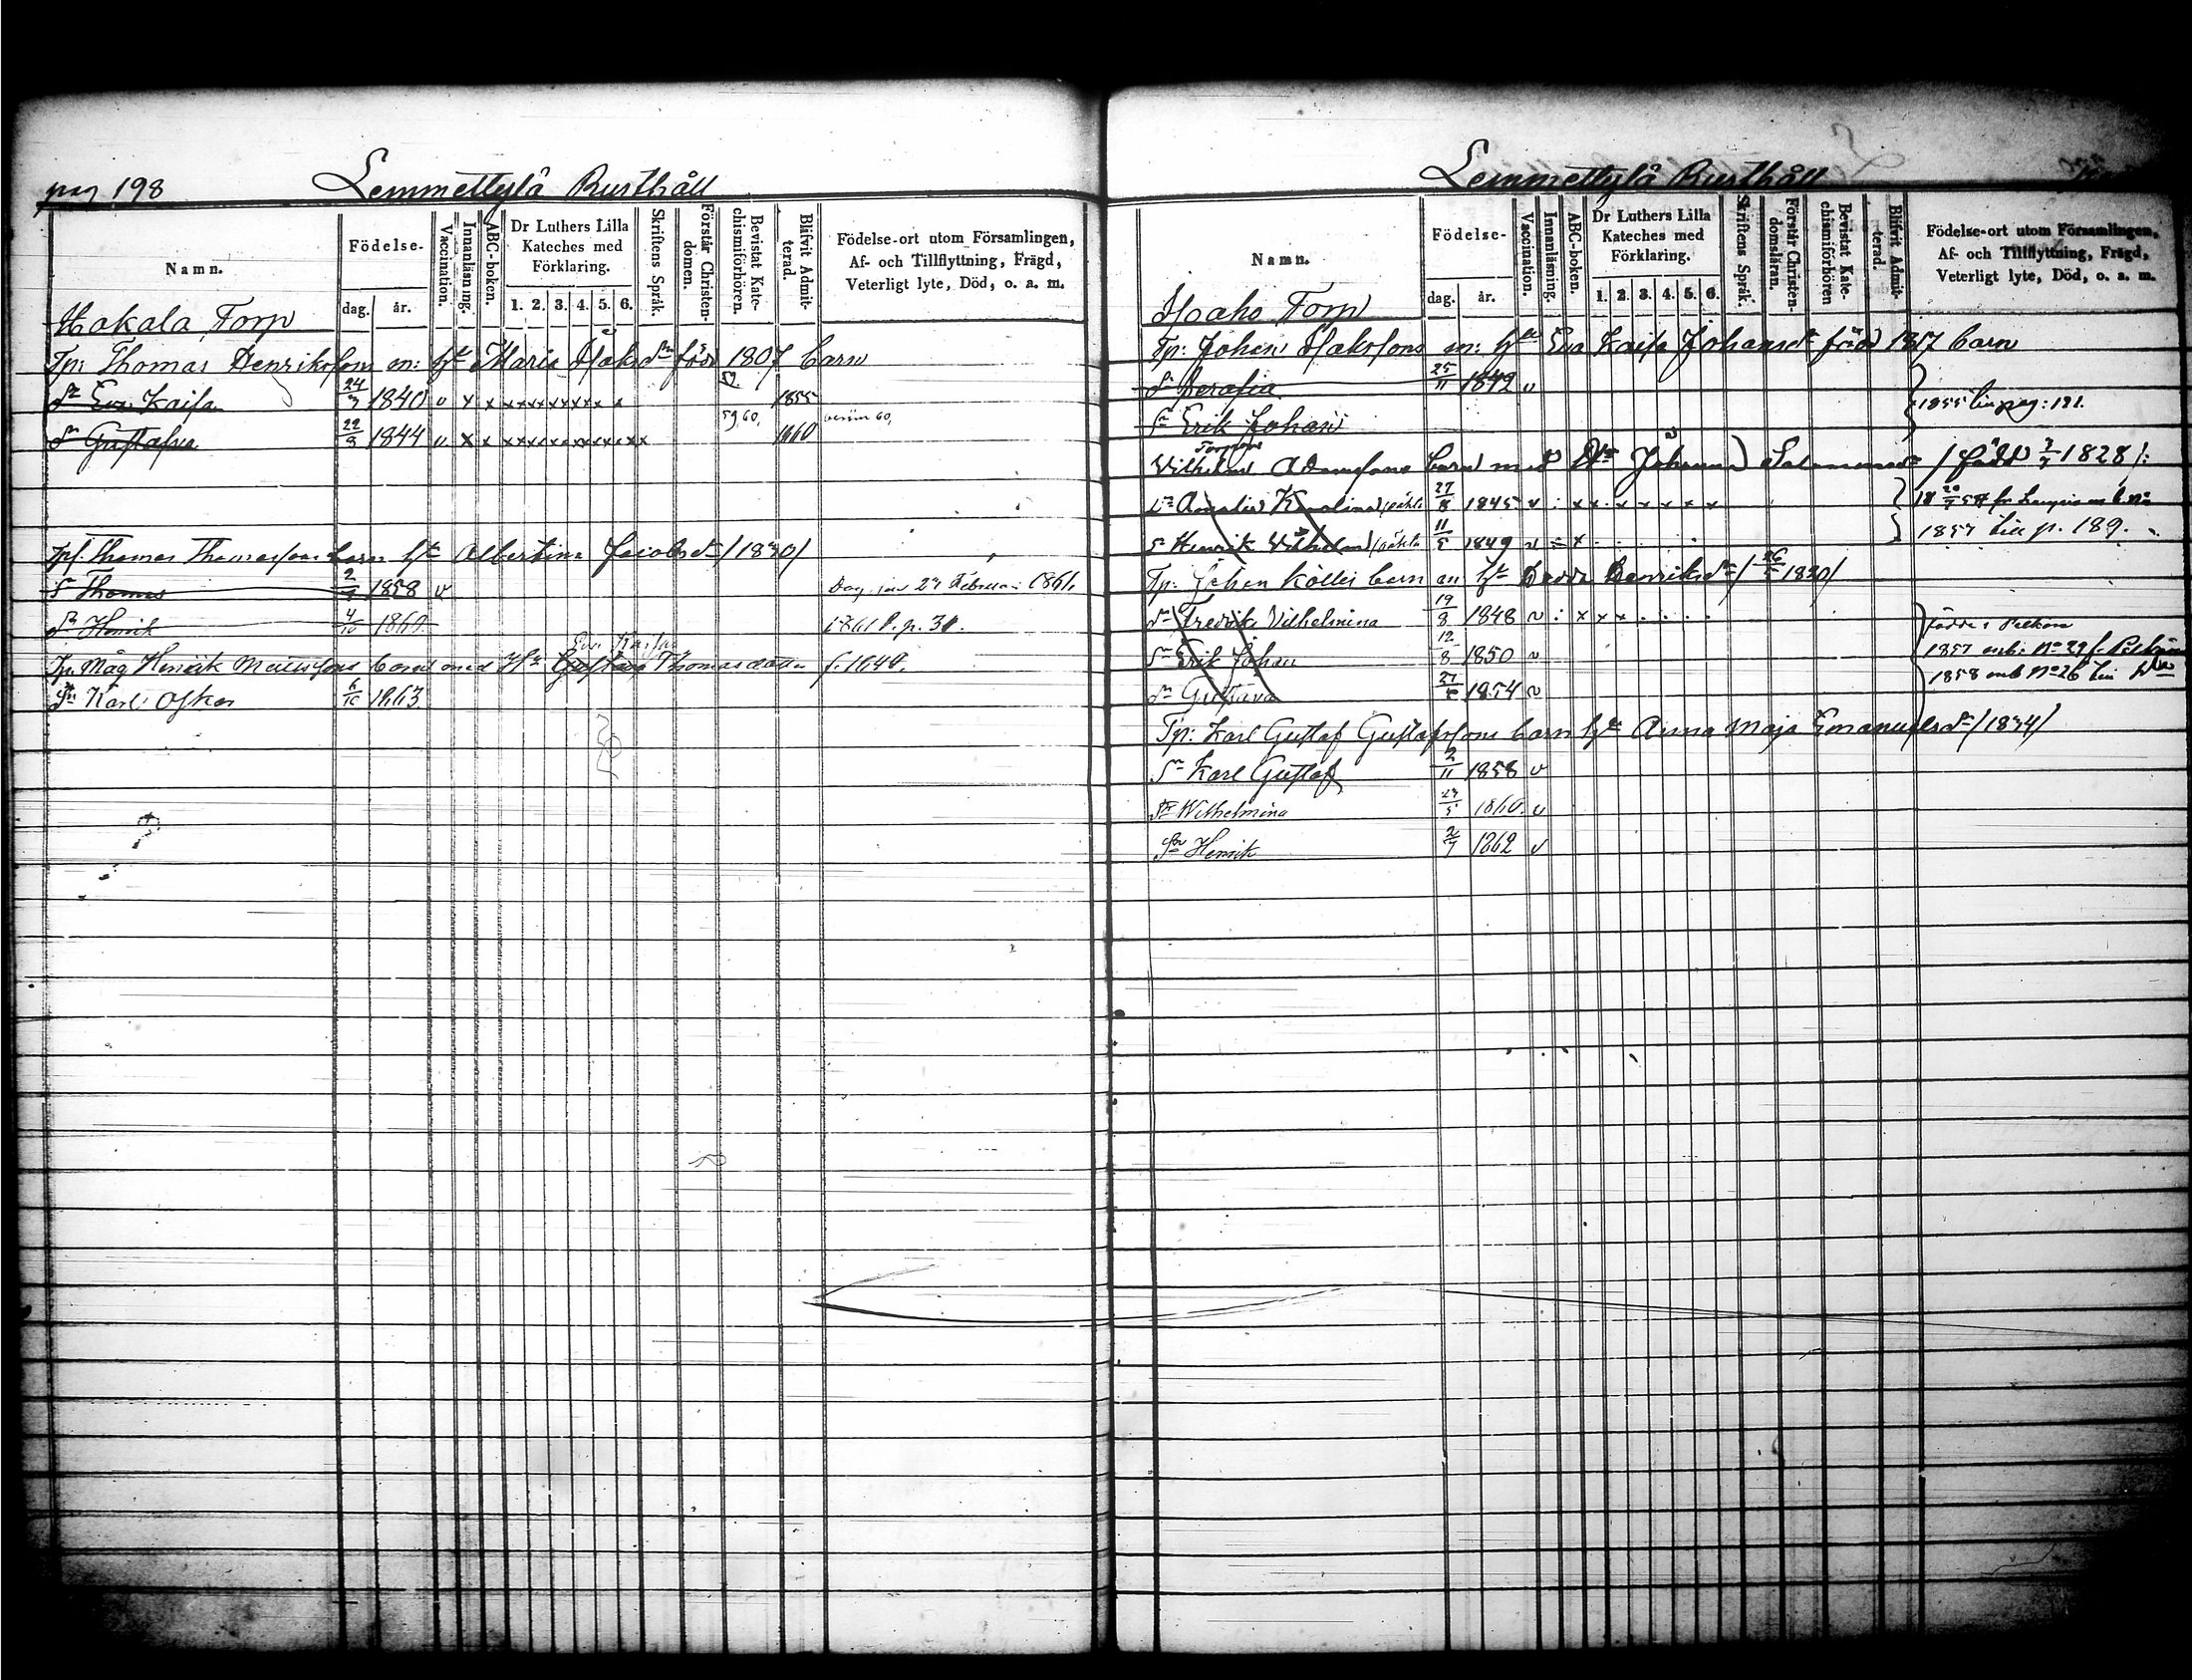 pag 198 Lemmettylä Rusthåll
Namn. Födelse- dag. år. Vaccination. Innanläsning. ABC-boken. Dr Luthers Lilla Kateches med Förklaring. 1. 2. 3. 4. 5. 6. Skriftens Språk. Förstår Christendomen. Bevistat Katechismiförhören. Blifvit Admitterad. Födelse-ort utom Församlingen, Af- och Tillflyttning, Frägd, Veterligt lyte, Död, o. a. m.
Hakala Torp
Tp: Thomas Henriksson m: Hu Maria Isaksdr född 1807 barn
dr Eva Kaisa 24/3 1840 v x x x x x x x x x x 1855
dr Gustafva 22/8 1844 v x x x x x x x x x x 59,60, 1860
Thomas Thomasson barn Hu Albertina Jacobsdr /1830/
Sn Thomas 2/ 1858 v 27 Februari 1861.
Sn Henrik 4/10 1860. 1861 p. 31.
Eva Kaisa
Tp. Måg Henrik Mattsson barn med Hu Gustava Thomasdotter f. 1840.
Sn Karl Oskar 6/10 1863
Lemmettylä Rusthåll
Namn. Födelse- dag. år. Vaccination. Innanläsning. ABC-boken. Dr Luthers Lilla Kateches med Förklaring. 1. 2. 3. 4. 5. 6. Skriftens Språk. Förstår Christendomsläran. Bevistat Katechismiförhören Blifvit Admitterad. Födelse-ort utom Församlingen, Af- och Tillflyttning, Frägd, Veterligt lyte, Död, o. a. m.
Haaho Torp
Tp: Johan Isaksson m: Hu Eva Kaisa Johansdr född 1817 barn
dr Serafia 25/11 1842 v
Sn Erik Johan 1855 till pag: 181.
Wilhelm Adamsson barn med Johanna Salomonsdr /född 3/7 1828/:
dr Amalia Karolina 27/8 1845 v
Sn Henrik Vilhelm 11/5 1849 v 1857 till p. 189.
Tp: Johan Kölli barn m Hu Hedda Henriksdr /26/5 1830/
dr Fredrika Vilhelmina 19/8 1848 v
Sn Erik Johan 12/8 1850 v 1857 No 29 f.
dr Gustava 27/ 1854 v 1858 No 26 till
Tp: Karl Gustaf Gustafsson barn Hu Anna Maja Emanuelsdr /1834/
Sn Karl Gustaf 2/11 1858 v
dr Wilhelmina 23/5 1860. v
Sn Henrik 2/7 1862 v